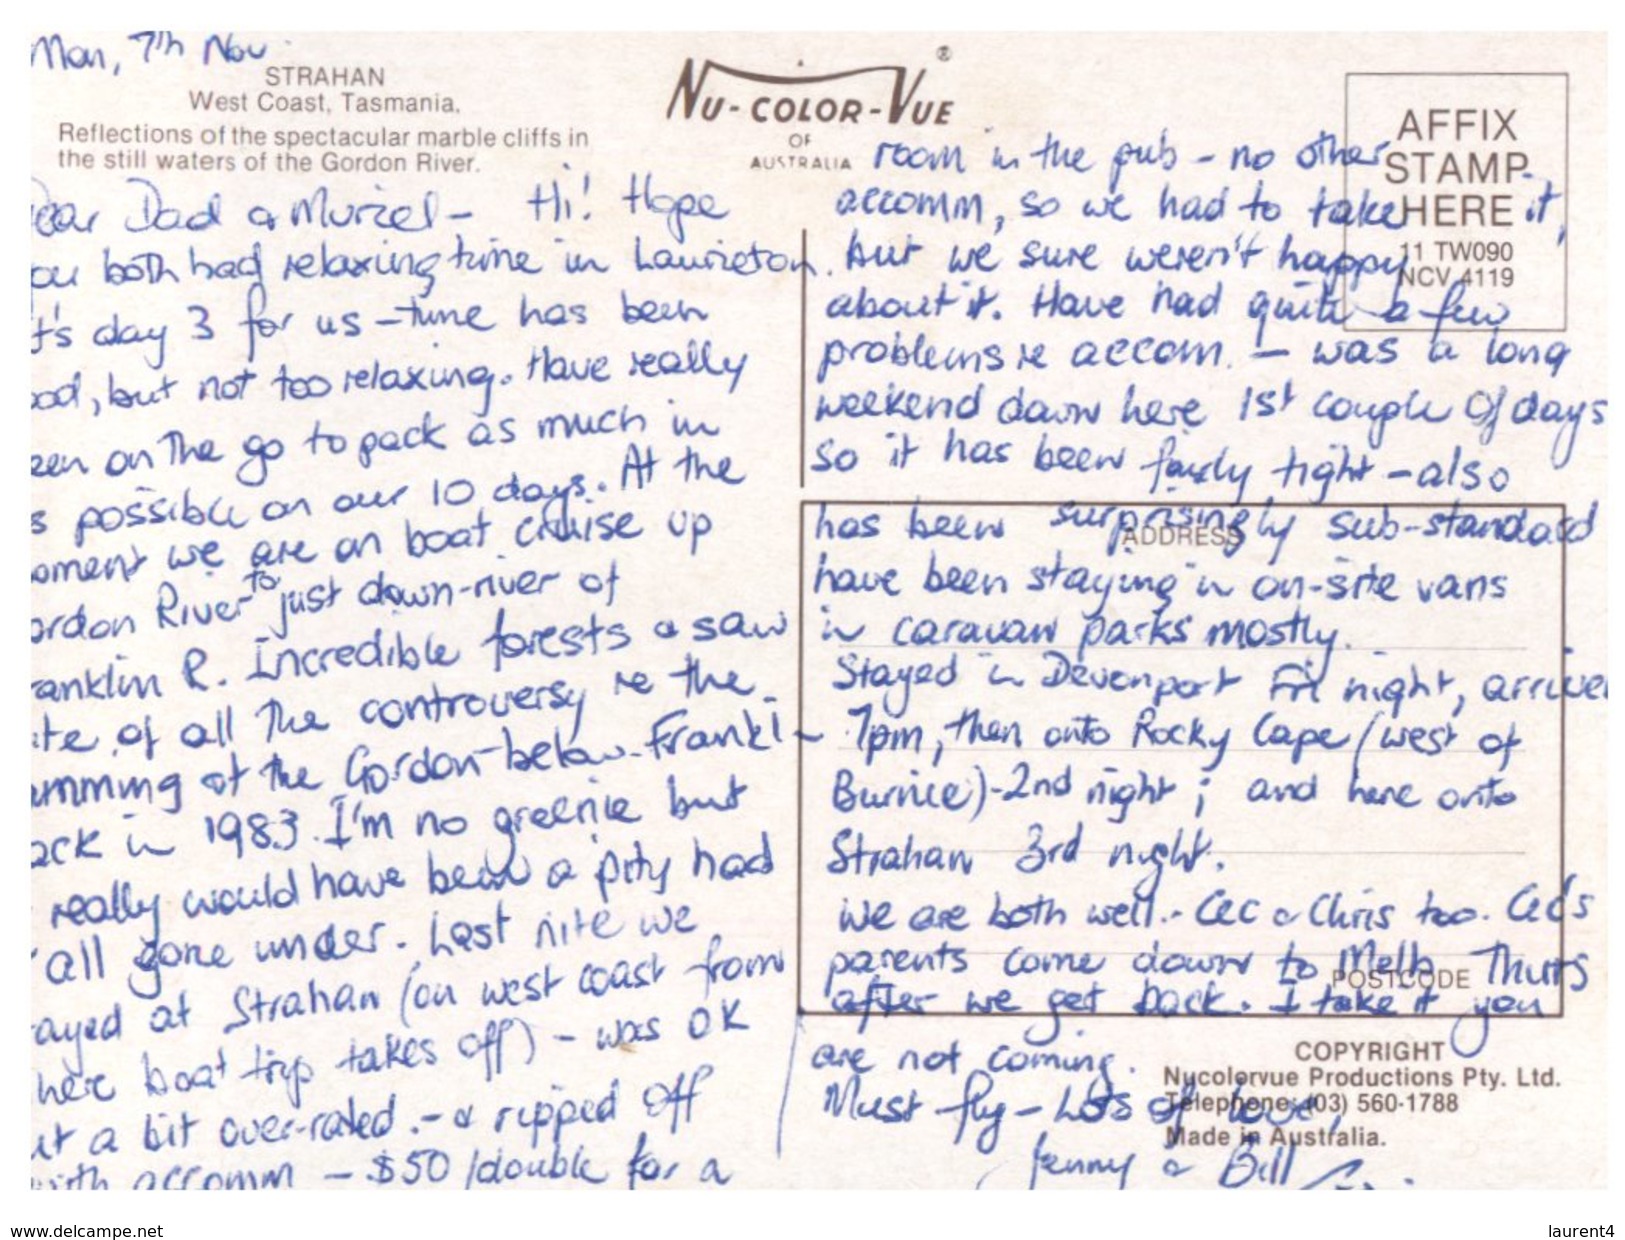 Mon, 7th Nov.
STRAHAN
West Coast, Tasmania.
Reflections of the spectacular marble cliffs in
the still waters of the Gordon River.
ear Dad & Muriel - Hi! Hope
ou both had relaxing time in Laurieton.
t's day 3 for us - time has been
ood, but not too relaxing. Have really
een on the go to pack as much in
s possible on our 10 days. At the
oment we are on boat cruise up
ordon River to just down-river of
ranklin R. Incredible forests & saw
ite of all the controversy re the
amming of the Gordon-below-Frankl-
ack in 1983. I'm no greenie but
really would have been a pity had
all gone under. Last nite we
ayed at Strahan (on west coast from
here boat trip takes off) - was OK
ut a bit over-rated. - & ripped off
with accomm - $50/double for a
NU-COLOR-VUE ®
OF
AUSTRALIA
AFFIX
STAMP
HERE
11 TW090
NCV 4119
room in the pub - no other
accomm, so we had to take it,
but we sure weren't happy
about it. Have had quite a few
problems re accom. - was a long
weekend down here 1st couple of days
so it has been fairly tight - also
has been surprisingly sub-standard
have been staying in on-site vans
in caravan parks mostly.
Stayed in Devonport Fri night, arrive
7pm, then onto Rocky Cape (west of
Burnie) - 2nd night; and here onto
Strahan 3rd night.
We are both well. - Cec & Chris too. Cec's
parents come down to Melb Thurs
after we get back. I take it you
are not coming.
Must fly - Lots of love,
Jenny & Bill
ADDRESS
POSTCODE
COPYRIGHT
Nucolorvue Productions Pty. Ltd.
Telephone: (03) 560-1788
Made in Australia.
www.delcampe.net
laurent4